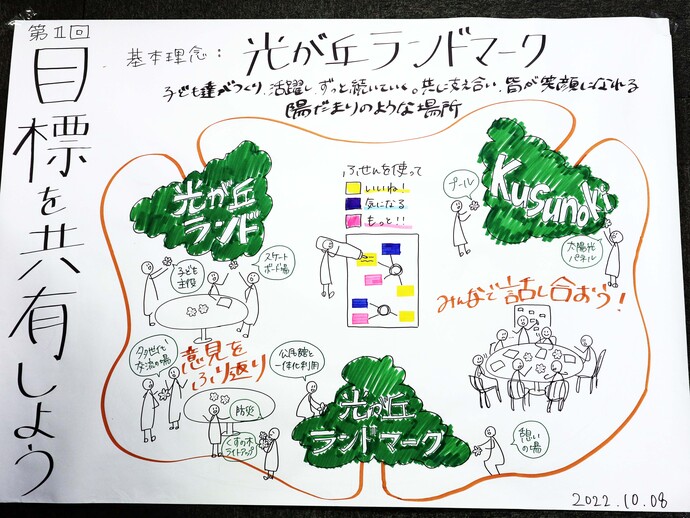 第Ⅱ回
目標を共有しよう
基本理念：光が丘ランドマーク
子ども達がつくり、活躍し、ずっと続いていく。共に支え合い、皆が笑顔になれる
陽だまりのような場所
光が丘
ランド
ふせんを使って
いいね!
気になる
もっと!!
Kusunoki
プール
太陽光
パネル
子ども
主役
スケート
ボード場
みんなで話し合おう!
多世代
交流の場
意見を
ふり返り
防災
くすの木
ライトアップ
公民館と
一体化利用
光が丘
ランドマーク
憩い
の場
2022.10.08